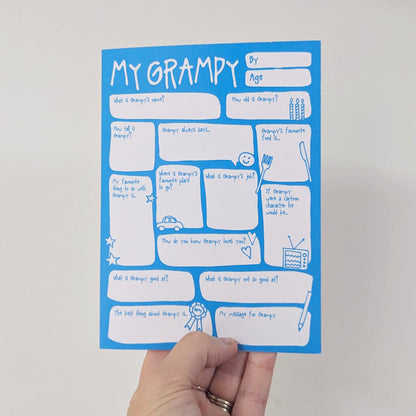 MY GRAMPY
By
Age
What is Grampy's name?
How old is Grampy?
How tall is
Grampy?
Grampy always says...
Grampy's favourite
food is...
My favourite
thing to do with
Grampy is...
Where is Grampy's
favourite place
to go?
What is Grampy's job?
If Grampy
were a cartoon
character he
would be...
How do you know Grampy loves you?
What is Grampy good at?
What is Grampy not so good at?
The best thing about Grampy is...
My message for Grampy